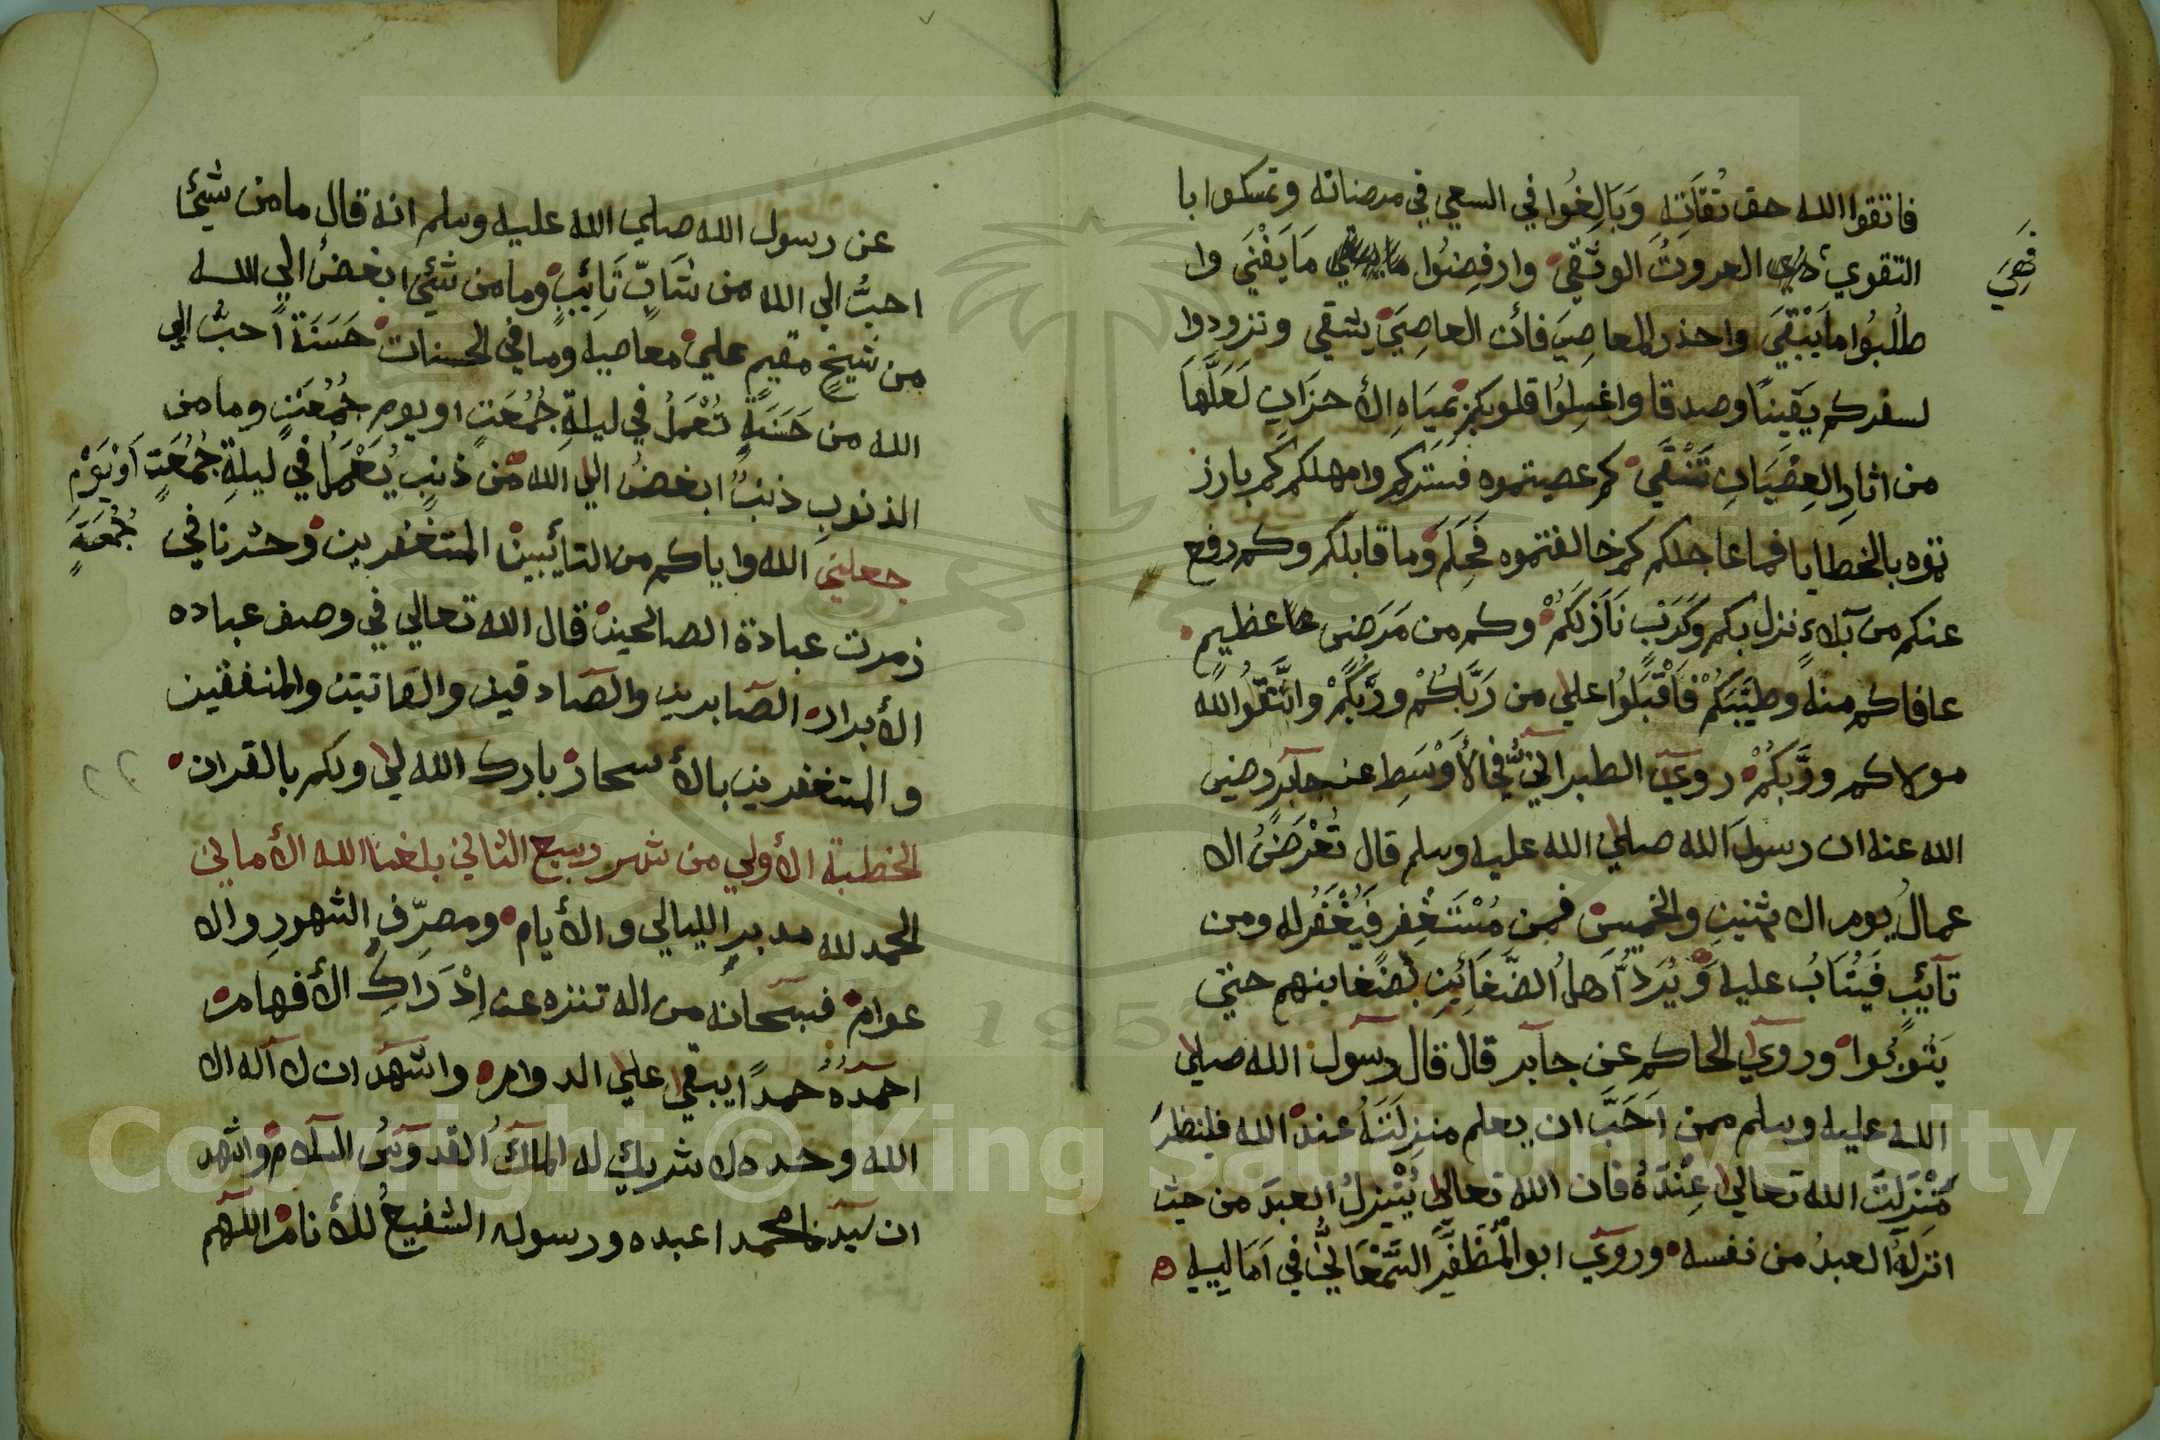 فاتقوا الله حق تُقَاتِهِ وَبَالِغُوا في السعي في مرضاته وتمسكوا با
التقوي العروتُ الوثقي وارفِضُوا مَا يَفْنَي وا
فَهِيَ
طلُبُوا ما يَبْقَيَ واحذر المعاصِيَ فأن العاصِيَ يشقي وتزودوا
لسفركم يَقِينًا وصدقا واغسِلُوا قلوبكم بمِيَاهِ الأحزَانِ لَعَلَّهَا
من اثارِ العِصْيَانِ تَنْقَي كم عصيتموه فسَتركم وامهلكم كم بارز
تموه بالخطايا فما عاجلكم كم خالفتموه فَحِلَمَ وما قابلكم وكم رفع
عنكم من بَلاءٍ نزل بكم وكَرَبْ نَازَلَكُمْ وكم من مَرَضِ عظيم
عافاكم منهُ وطيَّبَكُمْ فَاقْبَلُوا علي من رَبَّاكُمْ وربَّكُمْ واتَّقُوا الله
مولاكم وربَّكُمْ روي الطبراني في الأَوْسَطِ عن جابر رضي
الله عنه ان رسولَ الله صلي الله عليه وسلم قال تُعْرَضُ الا
عمالُ يوم الاثنينِ والخميس فمن مُسْتَغْفِر فَيُغْفَرُ له ومن
تآئِبٍ فَيُتَابُ عليه وَيُرَدُّ أهلُ الضَّغَائِنِ بضَغَاينهم حتي
يَتُوبُوا وروي الحاكم عن جابر قال قال رسول الله صلي
الله عليه وسلم ممن اَحَبَّ ان يعلم منزِلَتَهُ عند الله فلينظرَ
مَنْزِلَتَ الله تعالي عِنْدَهُ فان الله تعالي يُنْزِلُ العبدَ من حيث
انزلهُ العبدُ من نفسه وروي ابو المُظَفَّرِ السَّمْعَانِيُّ في اَمَالِيهِ
عن رسول الله صلي الله عليه وسلم انه قال ما من شيئ
احبُّ الي الله من شَابٍّ تَائِبٍ وما من شئي ابغضُ الي الله
من شيخٍ مقيم علي معاصيه وما في الحسنات حَسَنَةً احبُّ الي
الله من حَسَنَةٍ تُعْمَلُ في ليلةِ جُمُعَتٍ او يوم جُمُعَتٍ وما من
الذنوبِ ذنبٌ ابغضُ الي الله من ذنبٍ يُعْمَلُ في ليلةِ جُمُعَتٍ اَوْ يَوْمِ
جُمُعَةٍ
جعلني الله واياكم من التائبين المتغفرين وحشرنا في
زمرت عبادة الصالحين قال الله تعالي في وصف عباده
الأبرار الصابرين والصادقين والقانتين والمنفقين
والمتغفرين بالأسحار بارك الله لي ولكم بالقران
الخطبة الأولي من شهر ربيع الثاني بلغنا الله الأماني
الحمد لله مدبرِ الليالي والأيام ومصرِّفِ الشهورِ والا
عوام فسبحانه من اله تنزه عن اِدْرَاكِ الأفهام
احمدُهُ حمدًا يبقي علي الدوام واشهد ان لا اله الا
الله وحده لا شريك له الملكُ القدوسُ السلام واشهد
ان سيدنا محمدا عبده ورسوله الشفيعُ للأنام اللهم
Copyright © King Saud University
1957